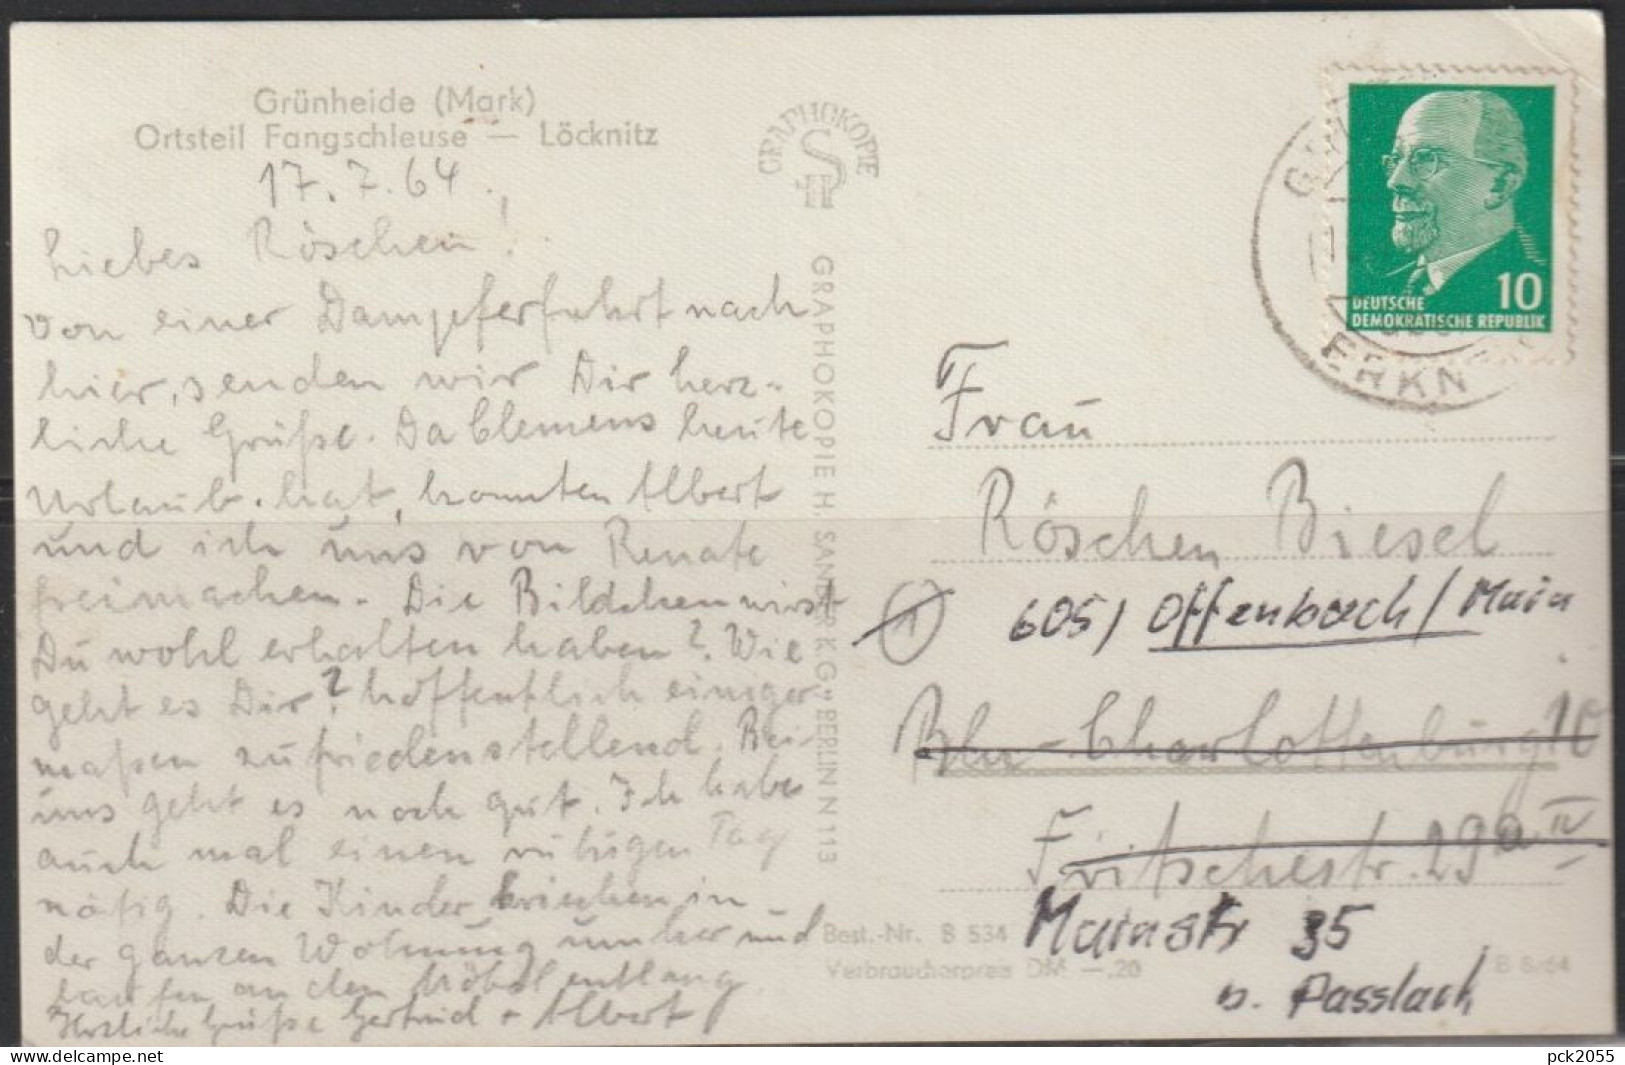 Grünheide (Mark)
Ortsteil Fangschleuse — Löcknitz
17.7.64.
Liebes Röschen!
Von einer Dampferfahrt nach
hier, senden wir Dir herz-
liche Grüße. Da Clemens heute
Urlaub hat, konnten Albert
und ich uns von Renate
freimachen. Die Bildchen wirst
Du wohl erhalten haben? Wie
geht es Dir? hoffentlich einiger
maßen zufriedenstellend. Bei
uns geht es noch gut. Ich habe
auch mal einen ruhigen Tag
nötig. Die Kinder kriechen in
der ganzen Wohnung umher und
laufen an den Möbel entlang.
Herzliche Grüße Gertrud + Albert
GRAPHOKOPIE
H S
GRAPHOKOPIE H. SANDER K.G. BERLIN N 113
DEUTSCHE
DEMOKRATISCHE REPUBLIK
10
ERKN
Frau
Röschen Biesel
1
605) Offenbach/Main
Bln-Charlottenburg 10
Fritschestr. 29a IV
Mainstr 35
b. Passlack
Best.-Nr. B 534
Verbraucherpreis DM —.20
B 6/64
delcampe.net
pck2055